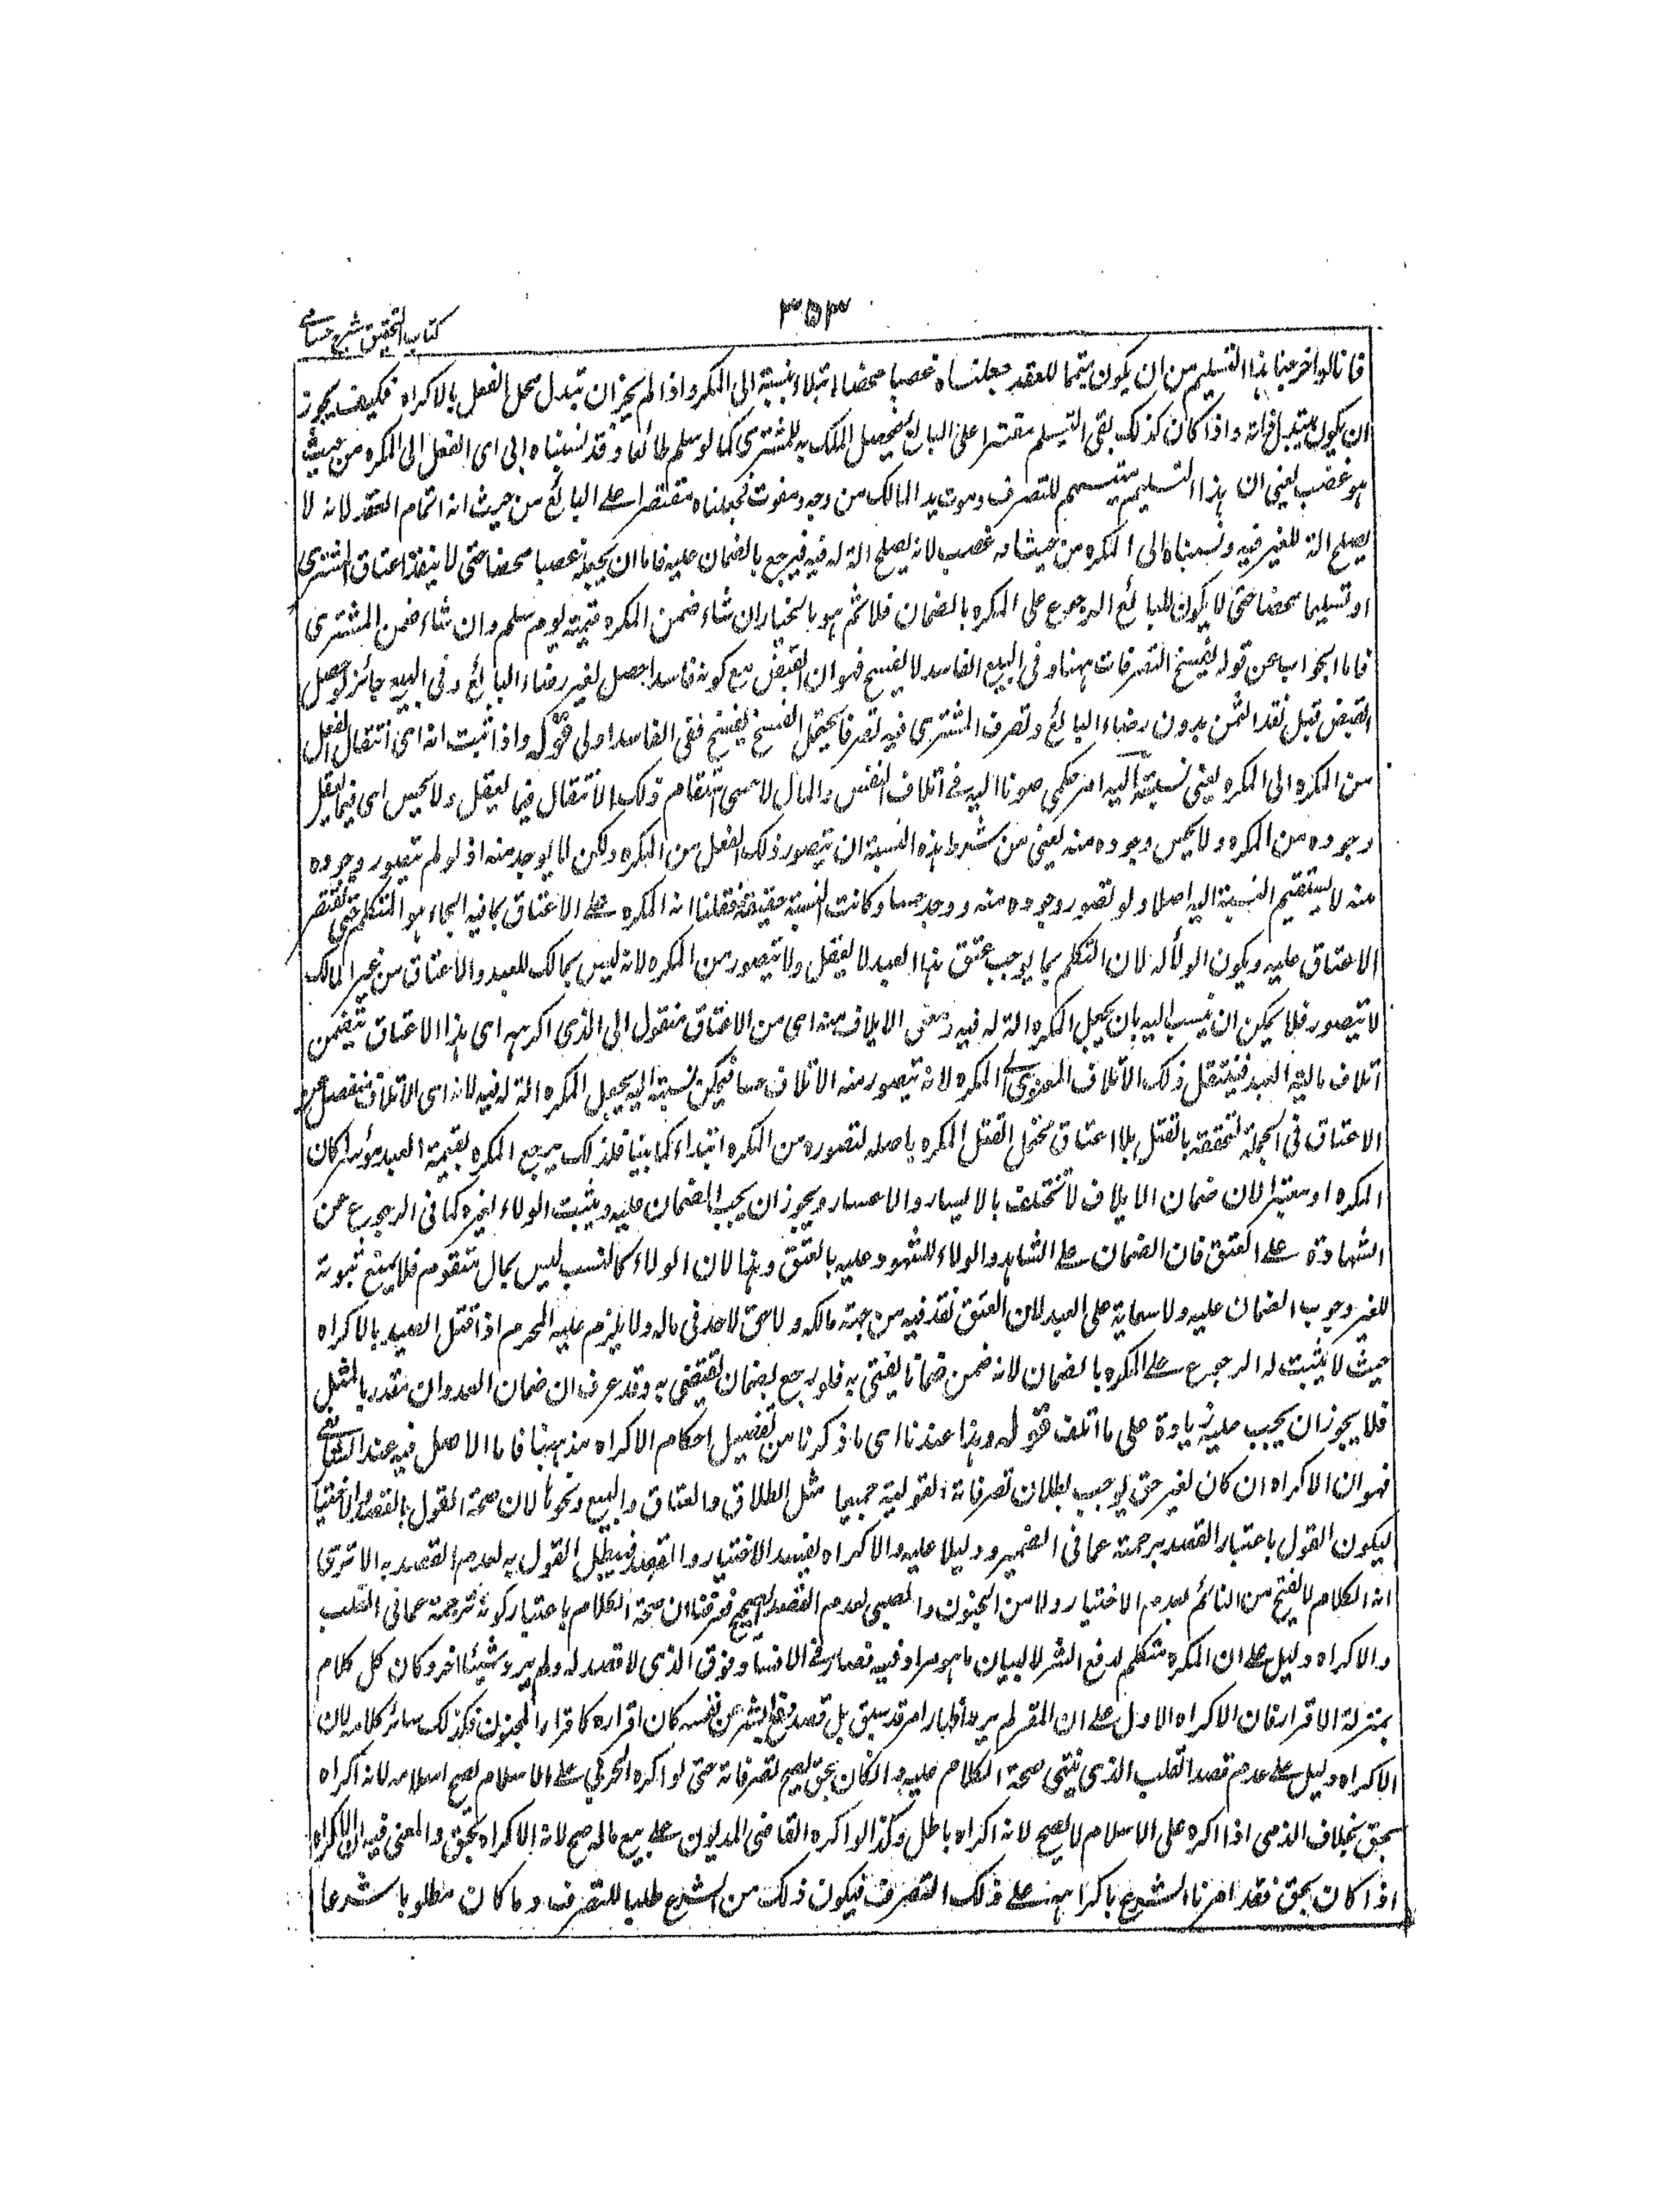 ۳۵۳
کتاب التحقیق شرح حسامی
فانا لو اخرجنا هذا التسلیم من ان یکون متمما للعقد جعلناه غصبا محضا ابتداء بنسبته الی المکره واذا لم یجز ان تبدل محل الفعل بالاکراه فکیف یجوز
ان یکون یتبدل ذاته واذا کان کذلک بقی التسلیم مقتصرا علی البائع فیحصل الملک به للمشتری کما لو سلم طائعا وقد نسبناه ای الفعل الی المکره من حیث
هو غصب یعنی ان هذا التسلیم متمم للتصرف ومفوت ید المالک من وجه ومفوت فجعلناه مقتصرا علی البائع من حیث انه اتمام العقد لانه لا
یصلح الة للغیر فیه ونسبناه الی المکره من حیث انه غصب لانه یصلح الة له فیه فیرجع بالضمان علیه فاما ان یجعله غصبا محضا حتی لا ینفذ اعتاق المشتری
او تسلیما محضا حتی لا یکون للبائع الرجوع علی المکره بالضمان فلا ثم هو بالخیار ان شاء ضمن المکره قیمته یوم سلمه وان شاء ضمن المشتری
فاما الجواب عن قوله یفسخ التصرفات ههنا وفی البیع الفاسد لا یفسخ فهو ان القبض مع کونه فاسدا حصل لغیر رضاء البائع وفی البیع جائز لو حصل
القبض قبل نقد الثمن بدون رضاء البائع وتصرف المشتری فیه تصرفا یحتمل الفسخ یفسخ ففی الفاسد اولی قوله واذا ثبت انه ای انتقال الفعل
من المکره الی المکره یعنی نسبته الیه امر حکمی صرنا الیه فی اتلاف النفس والمال لا حسی استقام ذلک الانتقال فیما یعقل ولا یحس ای فیما یعقل
وجوده من المکره ولا یحس وجوده منه یعنی من شرط هذه النسبة ان یتصور ذلک الفعل من المکره ولکن لا یوجد منه اذ لو لم یتصور وجوده
منه لا یستقیم النسبة الیه اصلا ولو تصور وجوده منه ووجد حسا وکانت النسبة حقیقة فقلنا ان المکره علی الاعتاق بما فیه الجاء هو المتکلم حتی یقتصر
الاعتاق علیه ویکون الولاء له لان التکلم بما یوجب عتق هذا العبد لا یعقل ولا یتصور من المکره لانه لیس بمالک للعبد والاعتاق من غیر المالک
لا یتصور فلا یمکن ان ینسب الیه بان یجعل المکره الة له فیه ومعنی الاتلاف منه ای من الاعتاق منقول الی الذی اکرهه ای هذا الاعتاق یتضمن
اتلاف مالیة العبد فینتقل ذلک الاتلاف المعنوی الی المکره لانه یتصور منه الاتلاف حسا فیمکن نسبته الیه بجعل المکره الة له فیه لانه ای الاتلاف منفصل عن
الاعتاق فی الجملة لتحققه بالقتل بلا اعتاق محتمل النقل الی المکره باصله لتصوره من المکره ابتداء کما بینا فلذلک یرجع المکره بقیمة العبد موسرا کان
المکره او معسرا لان ضمان الاتلاف لا تختلف بالایسار والاعسار ویجوز ان یجب الضمان علیه ویثبت الولاء لغیره کما فی الرجوع عن
الشهادة علی العتق فان الضمان علی الشاهد والولاء للمشهود علیه بالعتق وهذا لان الولاء کالنسب لیس بمال متقوم فلا یمنع ثبوته
للغیر وجوب الضمان علیه ولا سعایة علی العبد لان العتق نفذ فیه من جهة مالکه ولا حق لاحد فی ماله ولا یلزم علیه المحرم اذا قتل الصید بالاکراه
حیث لا یثبت له الرجوع علی المکره بالضمان لانه ضمن ضمانا یفتی به فلو رجع بضمان یقضی به وقد عرف ان ضمان العدوان مقدر بالمثل
فلا یجوز ان یجب علیه زیادة علی ما اتلف قوله وهذا عندنا ای ما ذکرنا من تفصیل احکام الاکراه مذهبنا فاما الاصل فیه عند الشافعی
فهو ان الاکراه ان کان لغیر حق یوجب بطلان تصرفاته القولیة جمیعا مثل الطلاق والعتاق والبیع ونحوها لان صحة القول بالقصد والاختیار
لیکون القول باعتبار القصد ترجمة عما فی الضمیر ودلیلا علیه والاکراه یفسد الاختیار والقصد فیبطل القول به لعدم القصد به الا تری
ان الکلام لا یصح من النائم لعدم الاختیار ولا من المجنون والصبی لعدم القصد الصحیح فعرفنا ان صحة الکلام باعتبار کونه ترجمة عما فی القلب
والاکراه دلیل علی ان المکره متکلم لدفع الشر لا لبیان ما هو مراد فیه فصار فی الافساد فوق الذی لا قصد له ولم یرد شیئا اخر وکان کل کلام
بمنزلة الاقرار فان الاکراه الاول علی ان المقر لم یرد اظهار امر قد سبق بل قصد دفع الشر عن نفسه کان اقراره کاقرار المجنون فکذلک سائر کلامه لان
الاکراه دلیل علی عدم قصد القلب الذی یبتنی صحة الکلام علیه وان کان بحق یصح تصرفاته حتی لو اکره الحربی علی الاسلام یصح اسلامه لانه اکراه
بحق بخلاف الذمی اذا اکره علی الاسلام لا یصح لانه اکراه باطل وکذا لو اکره القاضی المدیون علی بیع ماله صح لانه الاکراه بحق والمعنی فیه ان الاکراه
اذا کان بحق فقد امرنا الشرع باکراهه علی ذلک التصرف فیکون ذلک من الشرع طلبا للتصرف وما کان مطلوبا شرعا